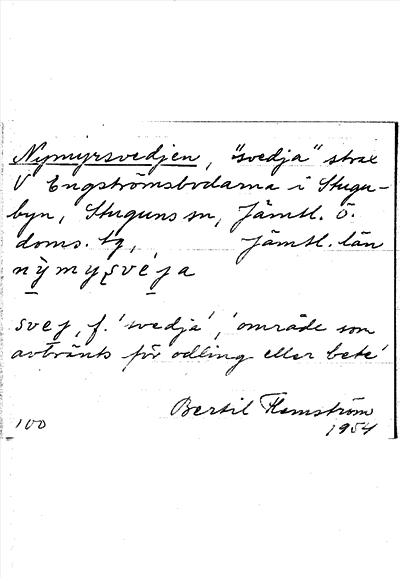 Nymyrsvedjen, "svedja" strax
V Engströmsbodarna i Stugu-
byn, Stuguns sn, Jämtl. ö.
doms. tg, Jämtl. län
nỳmyṣveja
svej, f. 'svedja', 'område som
avbränts för odling eller bete'
Bertil Flemström
100 1954